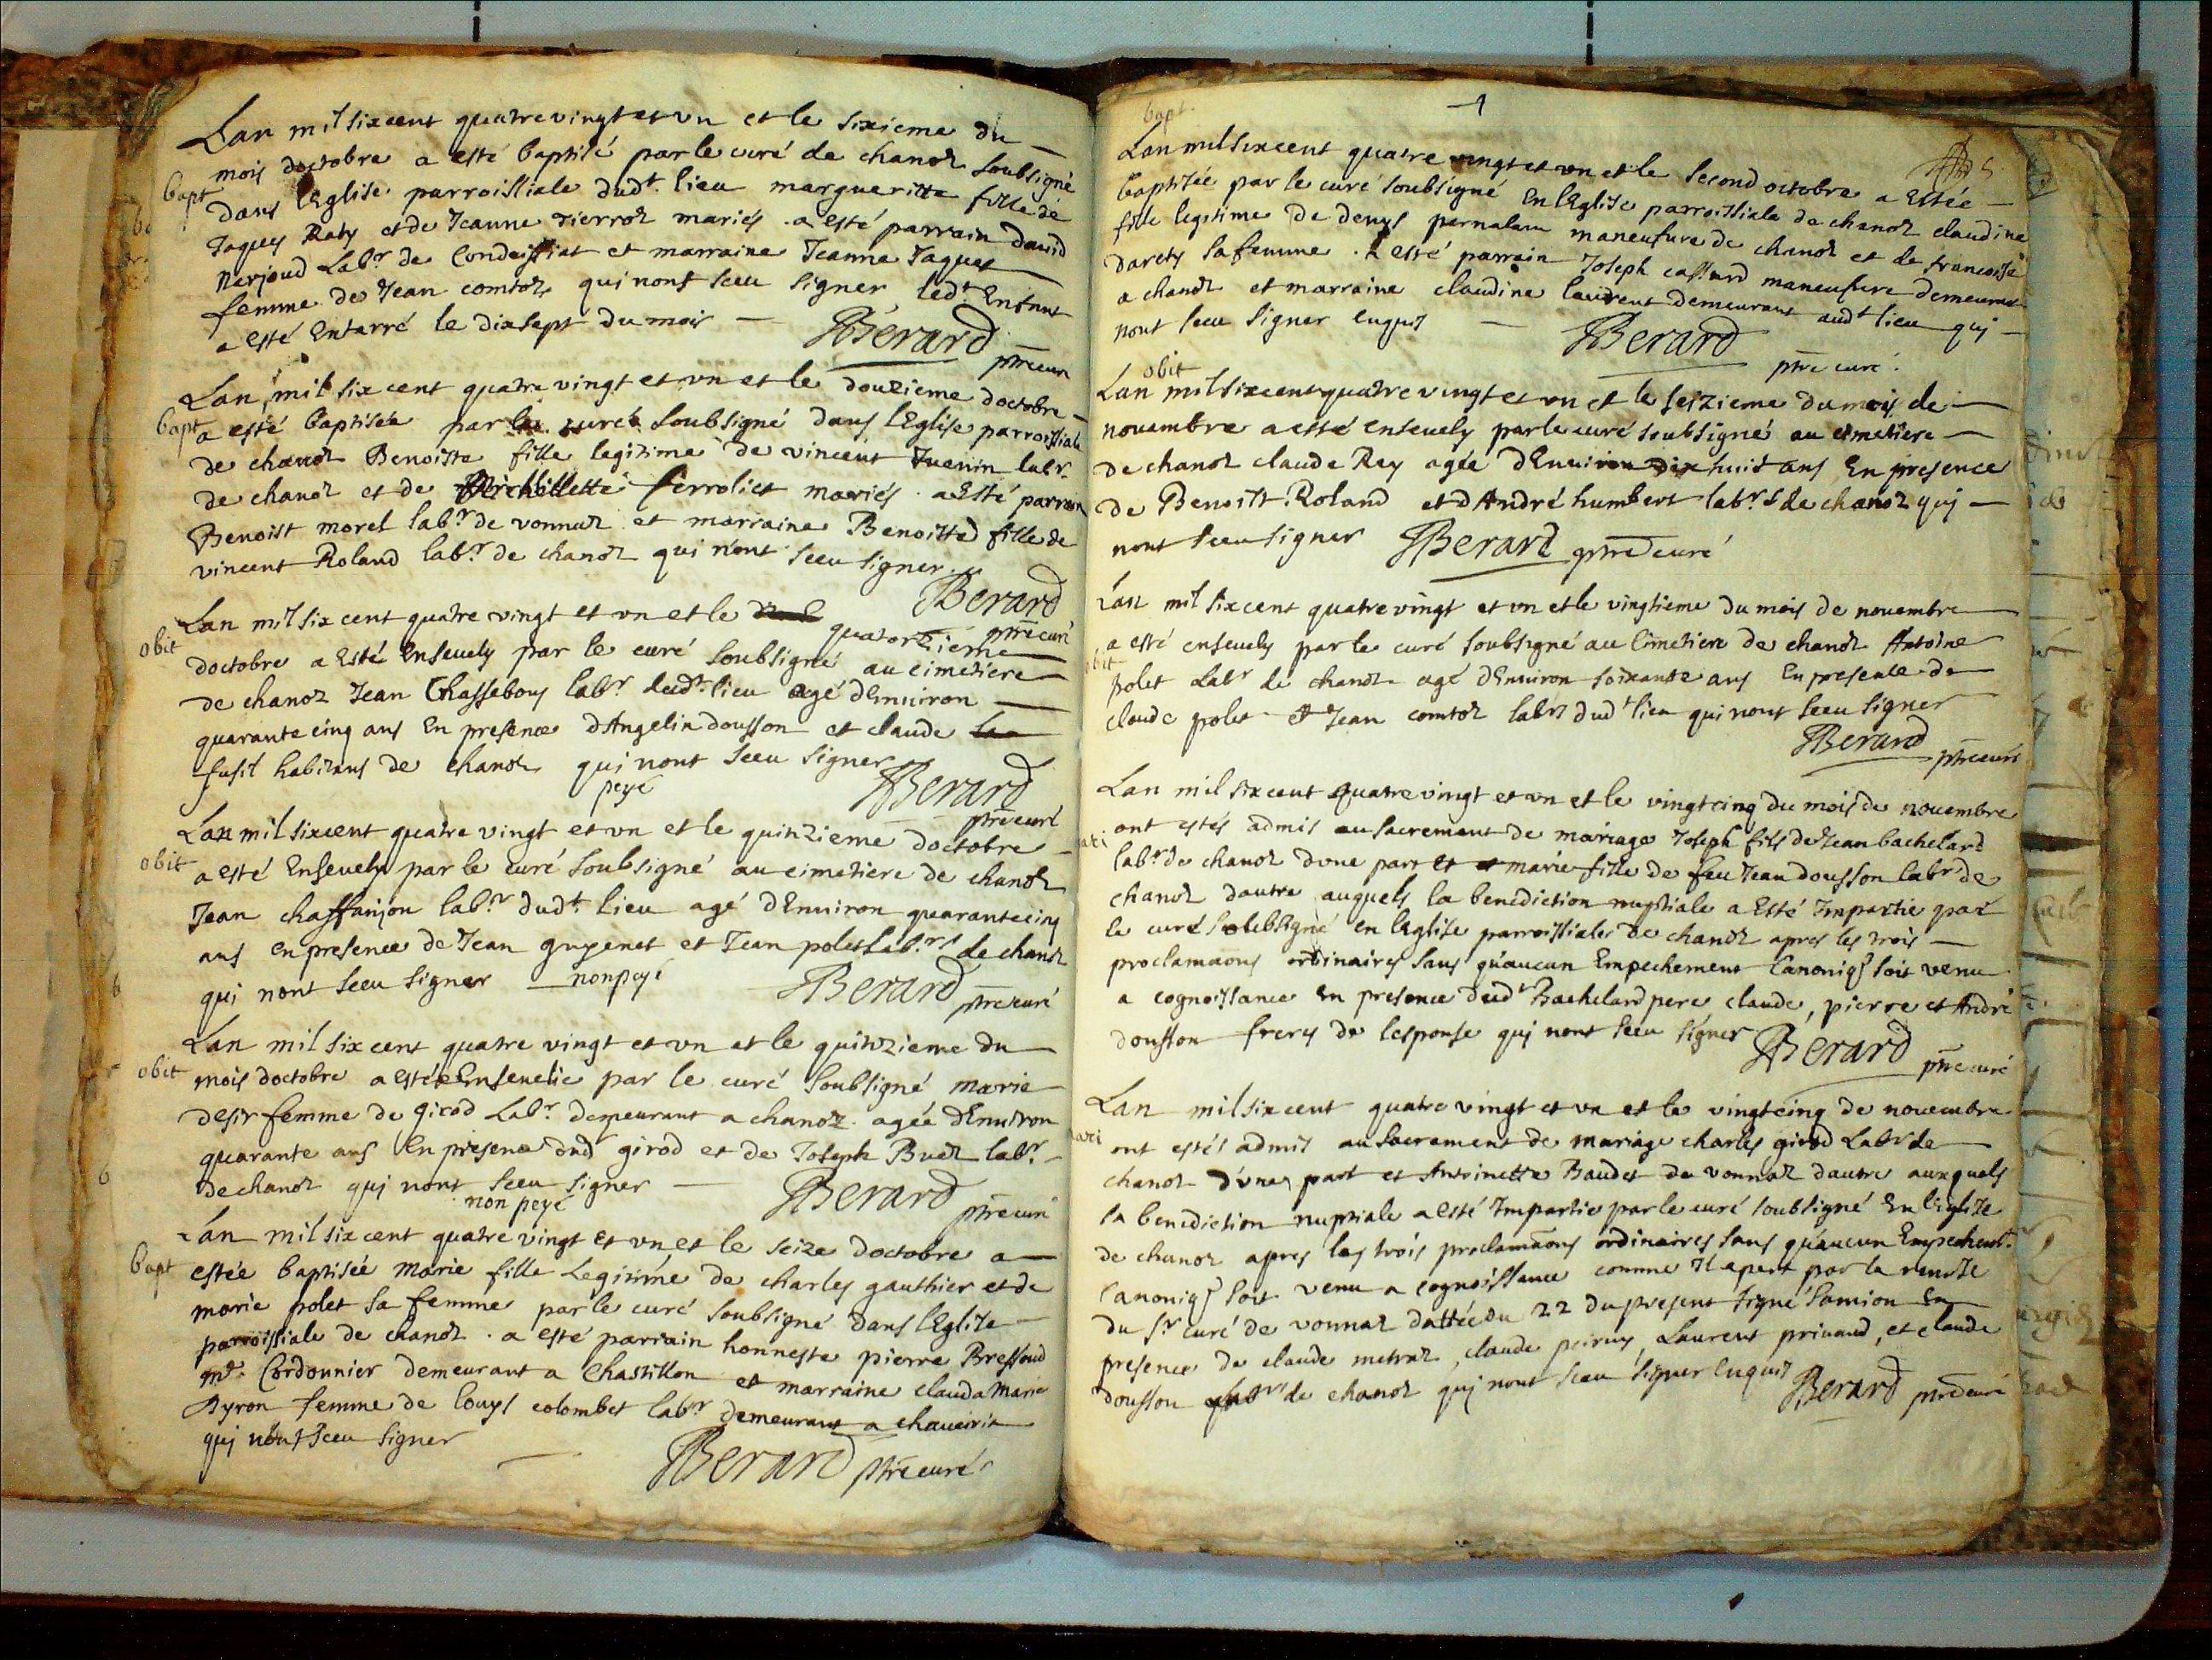 Lan mil six cent quatre vingt et vn et le sixieme du
mois doctobre a esté baptisé par le curé de chanoz soubsigné
bapt
dans lEglise parroissiale dudt. lieu margueritte fille de
Jaques Raty et de Jeanne Tierroz mariés . a esté parrain david
Labr. de Condeissiat et marraine Jeanne Jaquet
femme de Jean comtoz qui nont sceu signer ledt. Enfant
a esté Enterré le dixsept du mois
Berard ptre curé
Lan mil six cent quatre vingt et vn et le douzieme doctobre
bapt
a esté baptisée par le curé soubsigné dans lEglise parroissiale
de chanoz Benoiste fille legitime de vincent Juenin labr.
de chanoz et de ferroliet mariés . a Esté parrain
Benoist morel labr. de vonnaz et marraine Benoiste fille de
vincent Roland labr. de chanoz qui n'ont sceu signer
Berard ptre curé
Lan mil six cent quatre vingt et vn et le quatorzieme
obit
doctobre a Esté Ensevely par le curé soubsigné au cimetiere
de chanoz Jean Chassebouy labr. dudt. lieu agé dEnviron
quarante cinq ans En presence dAngelin dousson et claude
fusil habitans de chanoz qui nont sceu signer
payé
Berard ptre curé
Lan mil six cent quatre vingt et vn et le quinzieme doctobre
obit
a esté Ensevely par le curé soubsigné au cimetiere de chanoz
Jean chaffanjon labr. dudt. lieu agé dEnviron quarante cinq
ans En presence de Jean guyenet et Jean polet labrs de chanoz
qui nont sceu signer non payé
Berard ptre curé
Lan mil six cent quatre vingt et vn et le quinzieme du
obit
mois doctobre a estée Ensevelie par le curé soubsigné marie
desir femme de girod Labr. demeurant a chanoz agée dEnviron
quarante ans En presence dud girod et de Joseph Budz labr.
de chanoz qui nont sceu signer
non payé
Berard ptre curé
Lan mil six cent quatre vingt et vn et le seize doctobre a
bapt
estée baptisée marie fille Legitime de charles gauthier et de
marie polet sa femme par le curé soubsigné dans lEglise
parroissiale de chanoz . a esté parrain honneste pierre Bressoud
md. Cordonnier demeurant a Chastillon et marraine clauda marie
Byron femme de Louys colombet labr. demeurant a chaveiria
qui nont sceu signer
Berard ptre curé
1
bapt.
Lan mil sixcent quatre vingt et vn et le second octobre a Estée
baptisée par le curé soubsigné En lEglise parroissiale de chanoz claudine
fille legitime de denys maneufure de chanoz et de francoise
darety sa femme . A esté parrain Joseph cassard maneufure demeurant
a chanoz et marraine claudine laurent demeurant audt lieu qui
nont sceu signer Enquis
Berard ptre curé
obit
Lan mil sixcent quatre vingt et vn et le seizieme du mois de
novembre a esté ensevely par le curé soubsigné au cimetiere
de chanoz claude Rey agée dEnviron dix huit ans En presence
de Benoist Roland et dAndré humbert labr.s de chanoz qui
nont sceu signer Berard ptre curé
Lan mil six cent quatre vingt et vn et le vingtieme du mois de novembre
a esté ensevely par le curé soubsigné au Cimetiere de chanoz Antoine
obit
polet Labr de chanoz agé dEnviron soixante ans En presence de
claude polet et Jean comtoz labrs dudt lieu qui nont sceu signer
Berard ptre curé
Lan mil six cent quatre vingt et vn et le vingtcinq du mois de novembre
ont estés admis au sacrement de mariage Joseph fils de Jean bachelard
labr. de chanoz dune part et marie fille de feu Jean dousson labr de
chanoz dautre auquels la benediction nuptiale a Esté Impartie par
le curé soubsigné en lEglise parroissiale de chanoz apres les trois
proclamaons ordinaires sans quaucun Empechement Canoniq soit venu
a cognoissance En presence dudt Bachelard pere claude, pierre et André
dousson freres de lespouse qui nont sceu signer
Berard ptre curé
Lan mil six cent quatre vingt et vn et le vingtcinq de novembre
ont estés admis au sacrement de mariage charles girod Labr de
chanoz d'une part et Antoinette Baudet de vonnaz dautre auxquels
la benediction nuptiale a esté Impartie par le curé soubsigné En lEglise
de chanoz apres les trois proclamaons ordinaires sans quaucun Empechemt.
Canoniq soit venu a cognoissance comme Il apert par la remise
du sr curé de vonnaz dattée du 22 du present signé Samion En
presence de claude metraz, claude Laurent privaud, et claude
dousson de chanoz qui nont sceu signer Enquis
Berard ptre curé